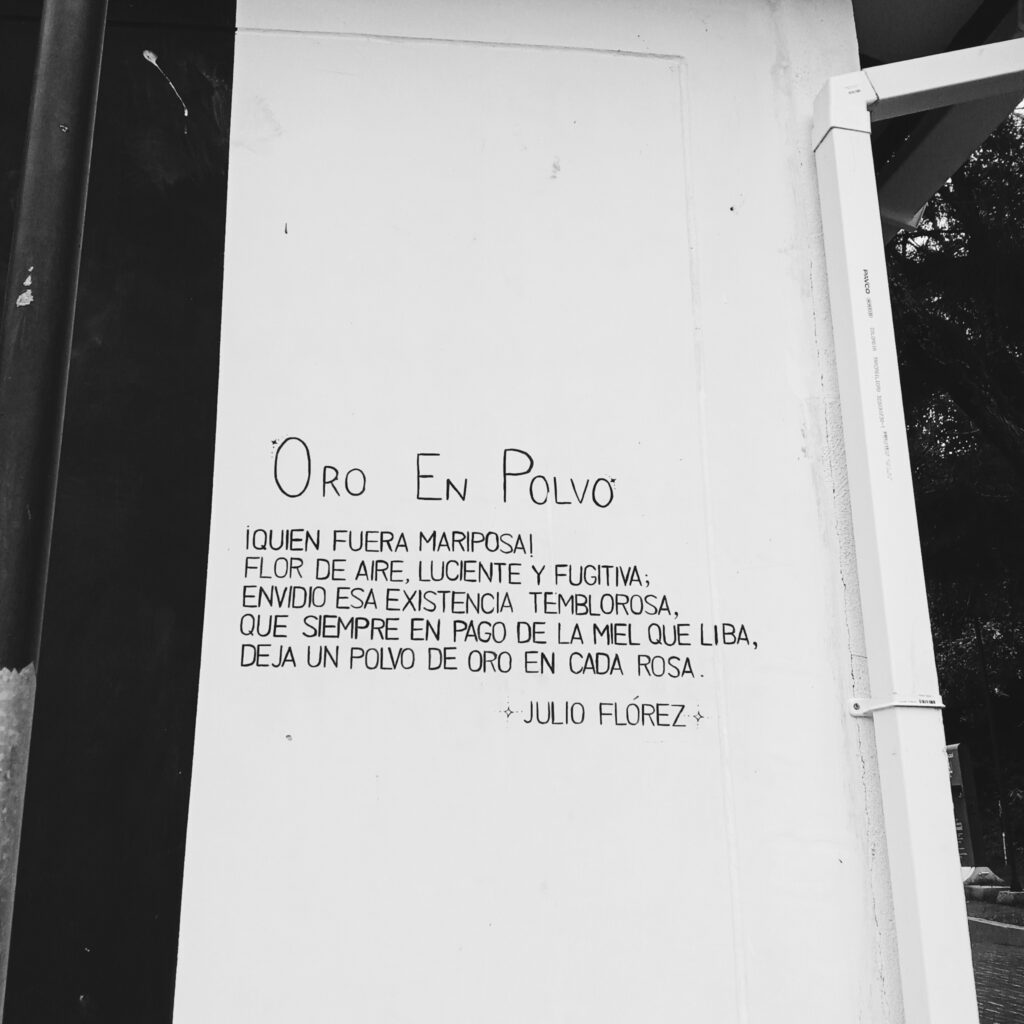 ORO EN POLVO
¡QUIEN FUERA MARIPOSA!
FLOR DE AIRE, LUCIENTE Y FUGITIVA;
ENVIDIO ESA EXISTENCIA TEMBLOROSA,
QUE SIEMPRE EN PAGO DE LA MIEL QUE LIBA,
DEJA UN POLVO DE ORO EN CADA ROSA.
JULIO FLÓREZ
PAVCO